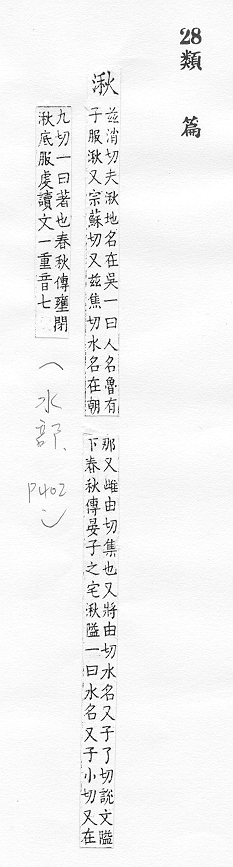 28類 篇
湫
兹消切夫湫地名在吳一曰人名魯有
子服湫又宗蘇切又兹焦切水名在朝
那又雌由切集也又將由切水名又子了切說文隘
下春秋傳晏子之宅湫隘一曰水名又子小切又在
九切一曰著也春秋傳壅閉
湫底服虔讀文一重音七
(水部、P402)